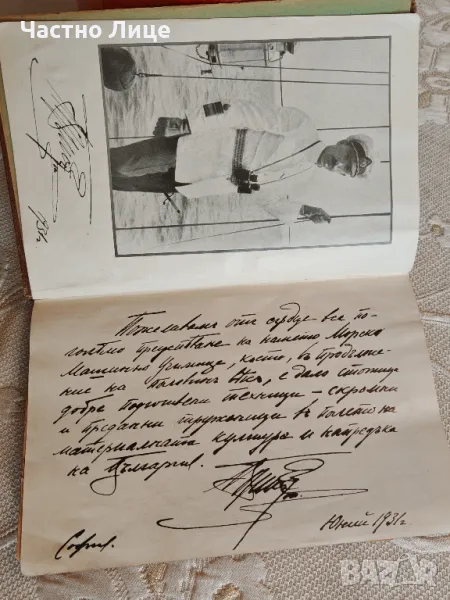 Частно Лице
1931
Пожелавамъ отъ сърдце все по-
голѣмо преуспѣване на нашето Морско
Машинно Училище, което, въ продълже-
ние на половинъ вѣкъ, е дало стотици
добре подготвени техници – скромни
и предани труженици въ полето на
материалната култура и напредъка
на България.
София.
Юний 1931 г.
BAZAR.bg